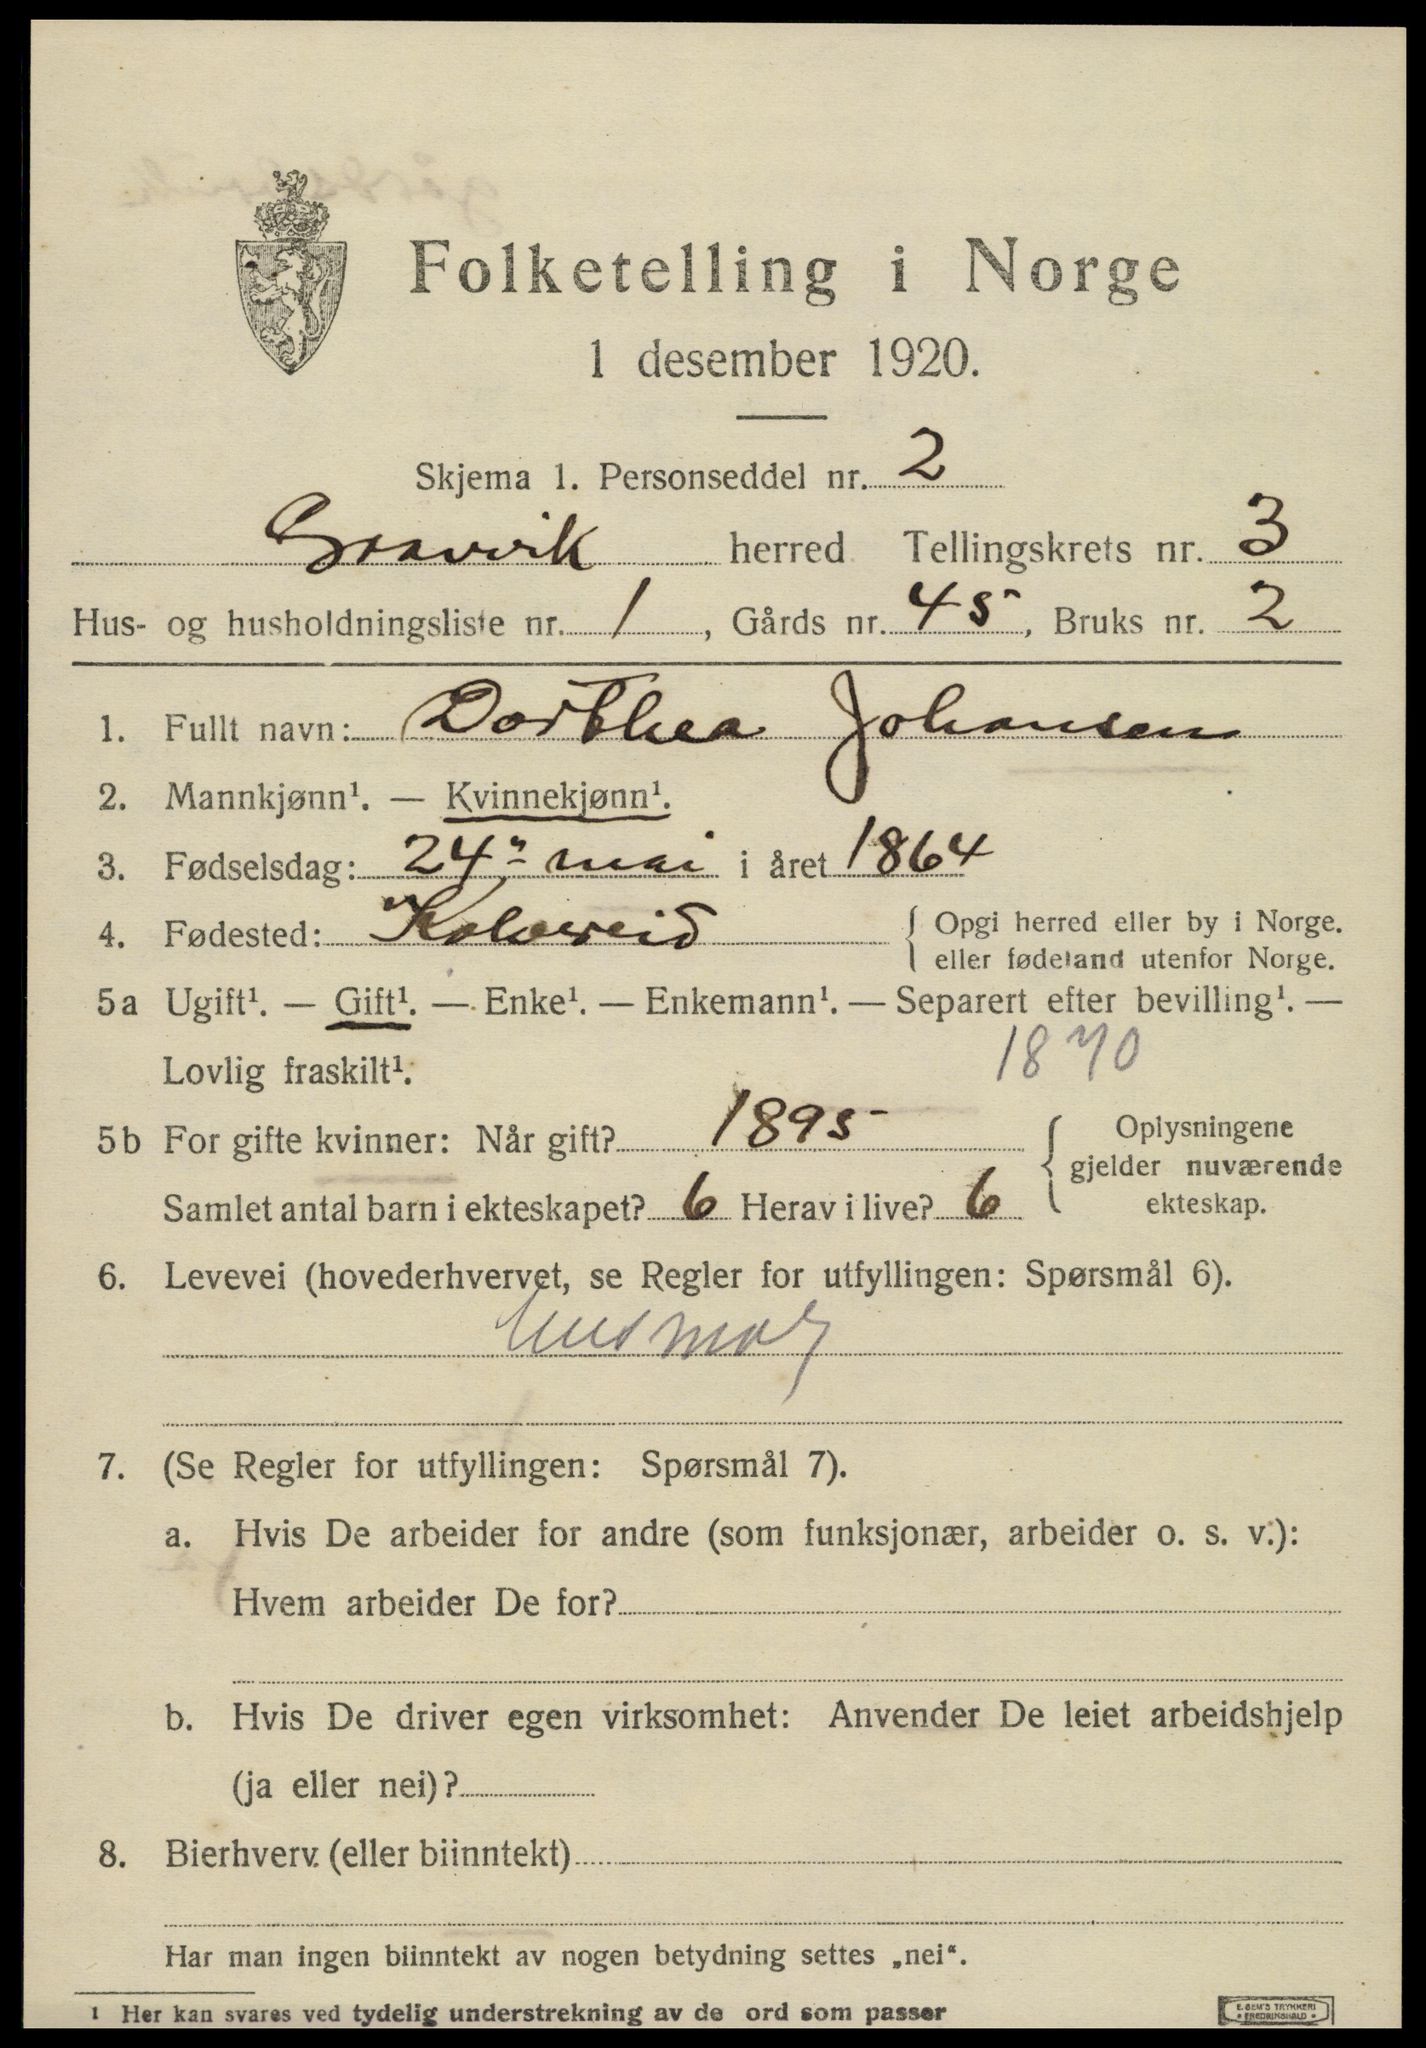 Folketelling i Norge
1 desember 1920.
Skjema 1. Personseddel nr. 2
Gravvik herred Tellingskrets nr. 3
Hus- og husholdningsliste nr. 1, Gårds nr. 45, Bruks nr. 2
1. Fullt navn: Dorthea Johansen
2. Mannkjønn¹. — Kvinnekjønn¹.
3. Fødselsdag: 24" mai i året 1864
4. Fødested: Kolvereid { Opgi herred eller by i Norge.
eller fødeland utenfor Norge.
5a Ugift¹. — Gift¹. — Enke¹. — Enkemann¹. — Separert efter bevilling¹. —
Lovlig fraskilt¹. 1870
5b For gifte kvinner: Når gift? 1895 { Oplysningene
gjelder nuværende
Samlet antal barn i ekteskapet? 6 Herav i live? 6 ekteskap.
6. Levevei (hovederhvervet, se Regler for utfyllingen: Spørsmål 6).
Husmor
7. (Se Regler for utfyllingen: Spørsmål 7).
a. Hvis De arbeider for andre (som funksjonær, arbeider o. s. v.):
Hvem arbeider De for?
b. Hvis De driver egen virksomhet: Anvender De leiet arbeidshjelp
(ja eller nei)?
8. Bierhverv. (eller biinntekt)
Har man ingen biinntekt av nogen betydning settes „nei“.
¹ Her kan svares ved tydelig understrekning av de ord som passer
E. SEM'S TRYKKERI
FREDRIKSHALD